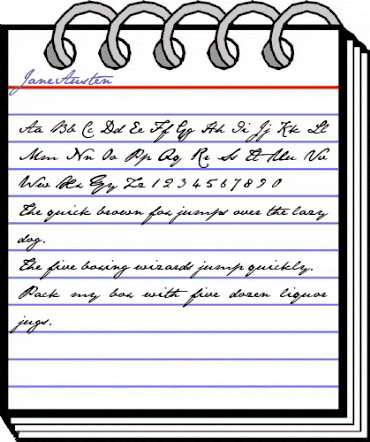 JaneAusten
Aa Bb Cc Dd Ee Ff Gg Hh Ii Jj Kk Ll
Mm Nn Oo Pp Qq Rr Ss Tt Uu Vv
Ww Xx Yy Zz 1 2 3 4 5 6 7 8 9 0
The quick brown fox jumps over the lazy
dog.
The five boxing wizards jump quickly.
Pack my box with five dozen liquor
jugs.